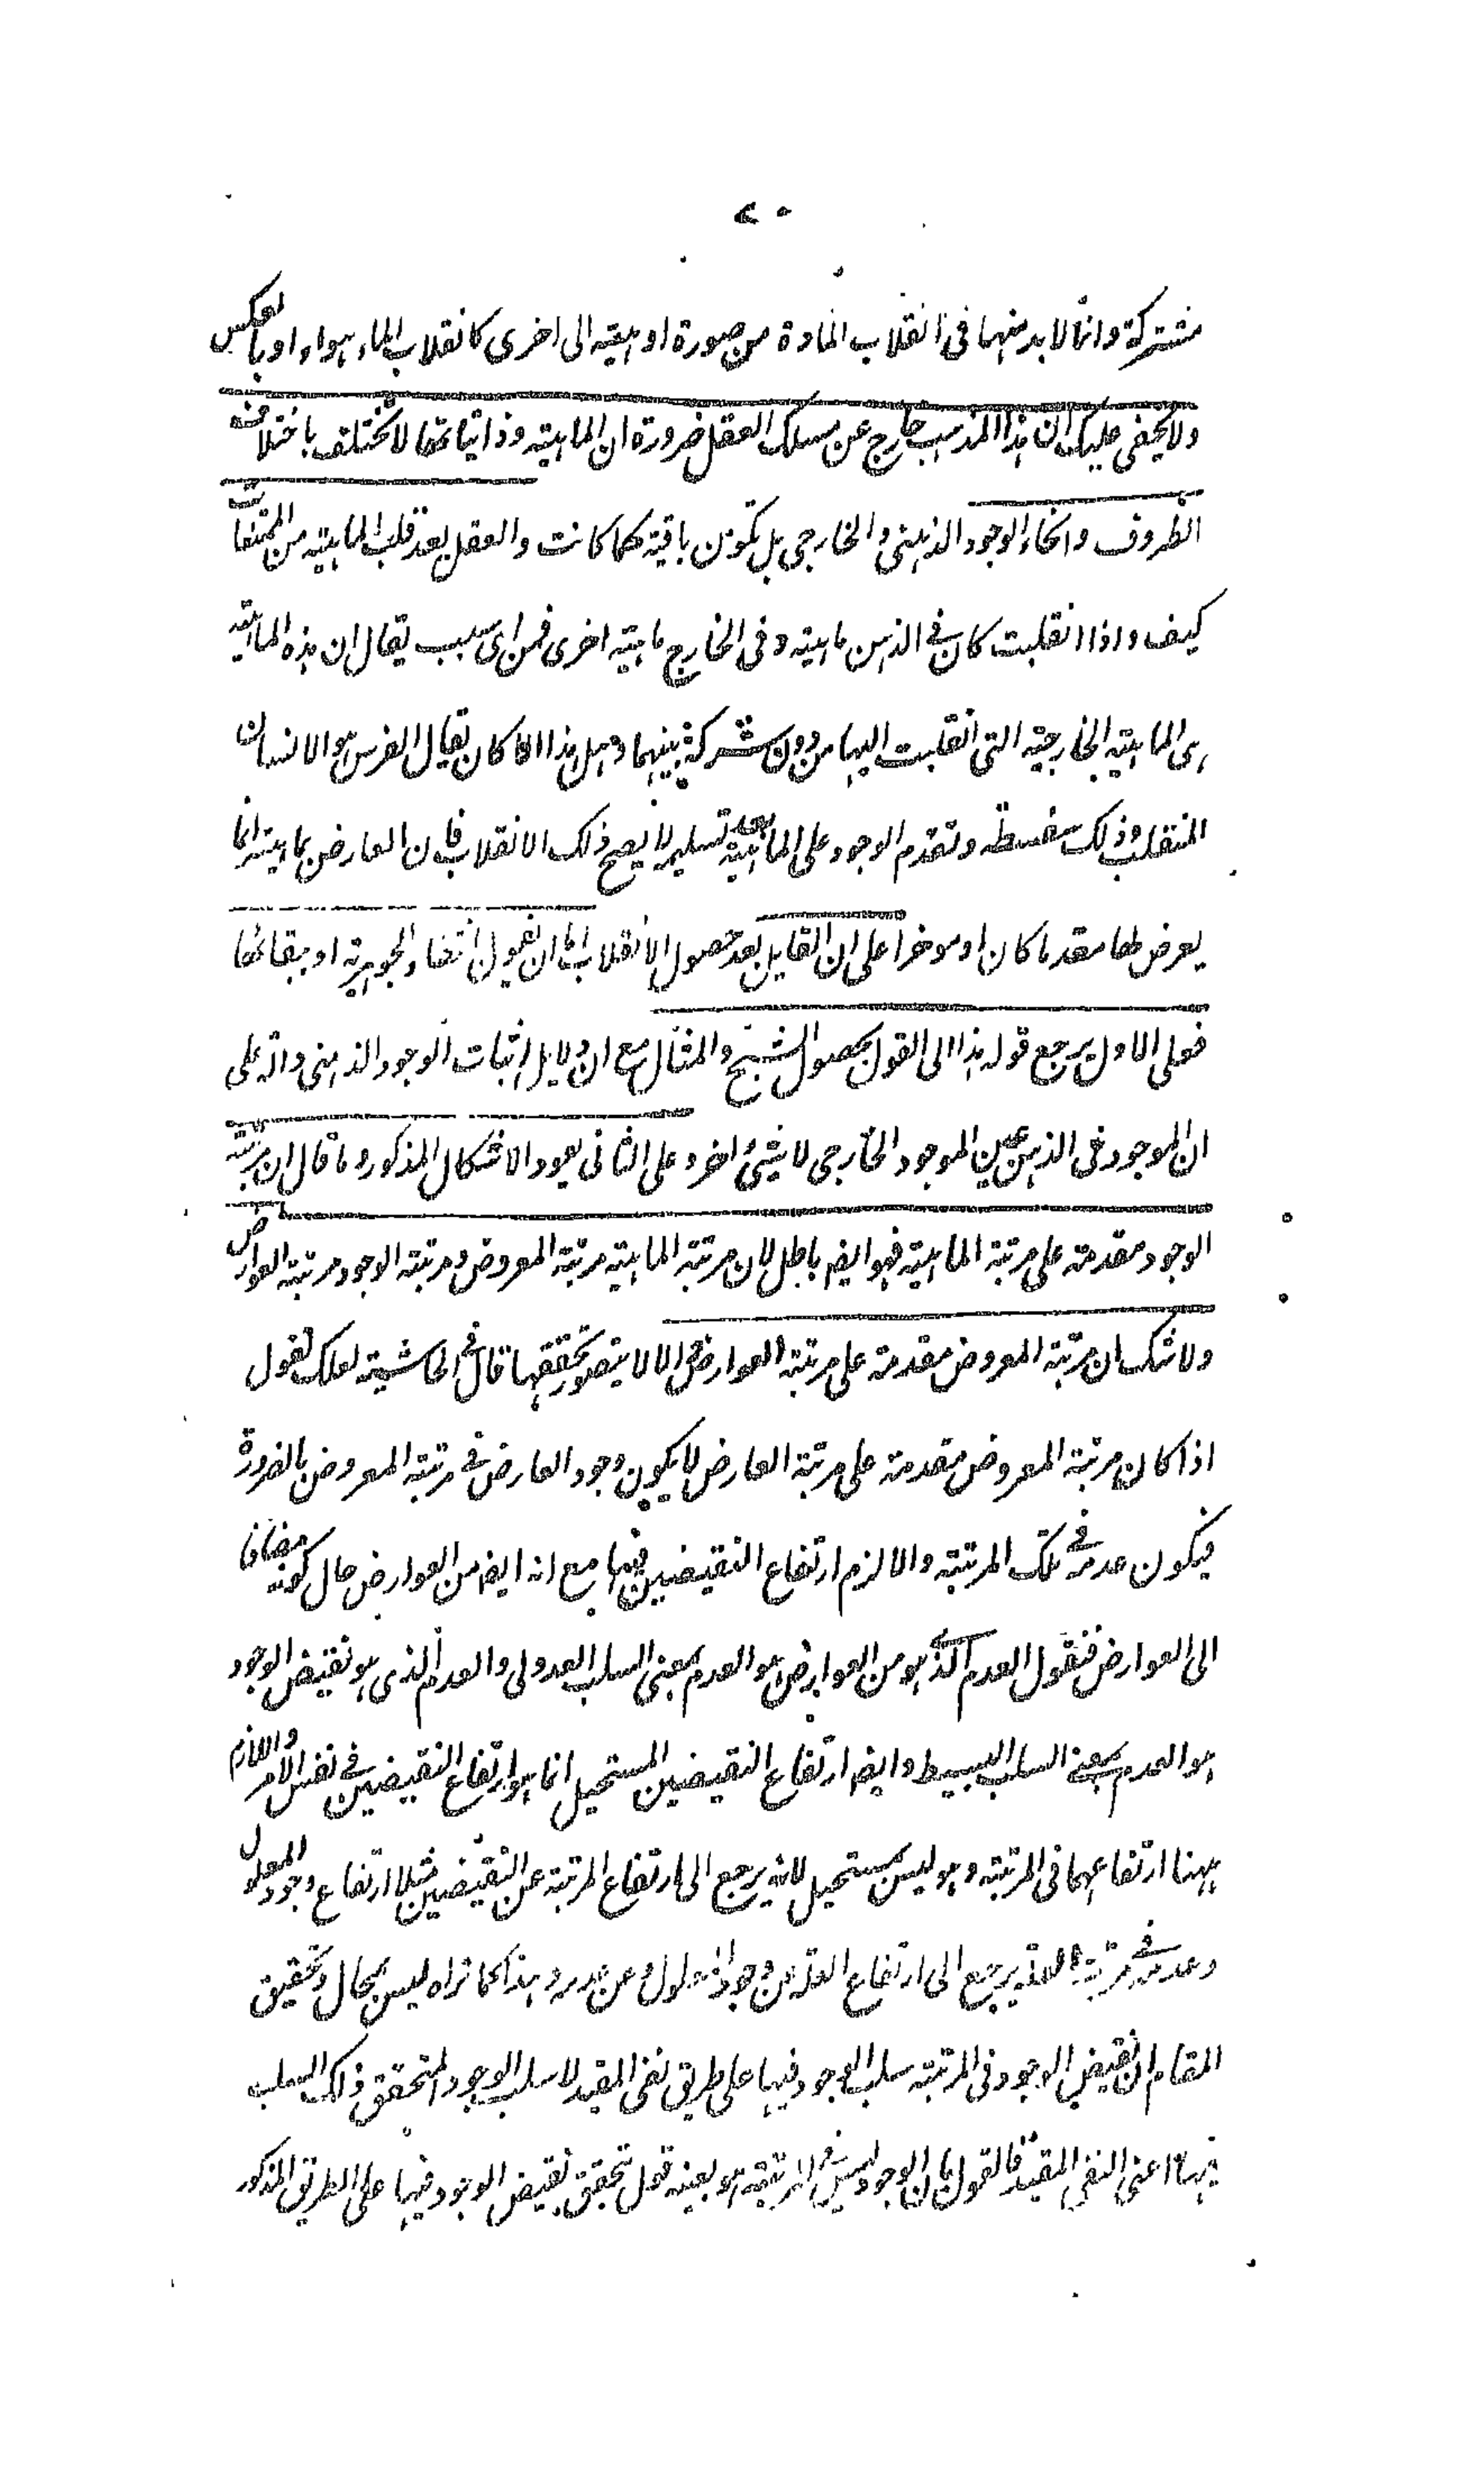 ٧٠
مشتركة وانما لا بد منها فى انقلاب المادة من صورة او هيئة الى اخرى كانقلاب الماء هواء او بالعكس
ولا يخفى عليك ان هذا المذهب خارج عن مسلك العقل ضرورة ان الماهية وذاتياتها لا تختلف باختلاف
الظروف وانحاء الوجود الذهنى والخارجى بل تكون باقية كما كانت والعقل يعد قلب الماهية من الممتنعات
كيف واذا انقلبت كان فى الذهن ماهية وفى الخارج ماهية اخرى فمن اى سبب يقال ان هذه الماهية
هى الماهية الخارجية التى انقلبت اليها من دون شركة بينهما وهل هذا الا كما كان يقال الفرس هو الانسان
المنقلب وذلك سفسطة وتقدم الوجود على الماهية بعد تسليمه لا يصح ذلك الانقلاب فان العارض بماهية انما
يعرض لها مقدما كان او موخرا على ان القايل بعد حصول الانقلاب اما ان يقول انتفاء الجوهرية او ببقائها
فعلى الاول يرجع قوله هذا الى القول بحصول الشبح والمثال مع ان دلايل اثبات الوجود الذهنى دالة على
ان الموجود فى الذهن عين الموجود الخارجى لا شئ اخر وعلى الثانى يعود الاشكال المذكور وما قال ان مرتبة
الوجود مقدمة على مرتبة الماهية فهو ايضم باطل لان مرتبة الماهية مرتبة المعروض ومرتبة الوجود مرتبة العوارض
ولا شك ان مرتبة المعروض مقدمة على مرتبة العوارض والا لا يتصور تحققها قال فى الحاشية لعلك تقول
اذا كان مرتبة المعروض مقدمة على مرتبة العارض لا يكون وجود العارض فى مرتبة المعروض بالضرورة
فيكون عدمه فى تلك المرتبة والا لزم ارتفاع النقيضين فيها مع انه ايضم من العوارض حال كونه مضافا
الى العوارض فنقول العدم الذى هو من العوارض هو العدم بمعنى السلب العدولى والعدم الذى هو نقيض الوجود
هو العدم بمعنى السلب البسيط وايضم ارتفاع النقيضين المستحيل انما هو ارتفاع النقيضين فى نفس الامر واللازم
ههنا ارتفاعهما فى المرتبة وهو ليس بمستحيل لانه يرجع الى ارتفاع المرتبة عن النقيضين مثلا ارتفاع وجود المعلول
وعدمه فى مرتبة العلة يرجع الى ارتفاع العلة عن وجود المعلول وعن عدمه وهذا كما تراه ليس بمحال وتحقيق
المقام ان نقيض الوجود فى المرتبة سلب الوجود فيها على طريق نفى المقيد لا سلب الوجود المتحقق ذلك السلب
فيها اعنى النفى المقيد فالقول بان الوجود ليس فى المرتبة هو بعينه قول بتحقق نقيض الوجود فيها على الطريق المذكور